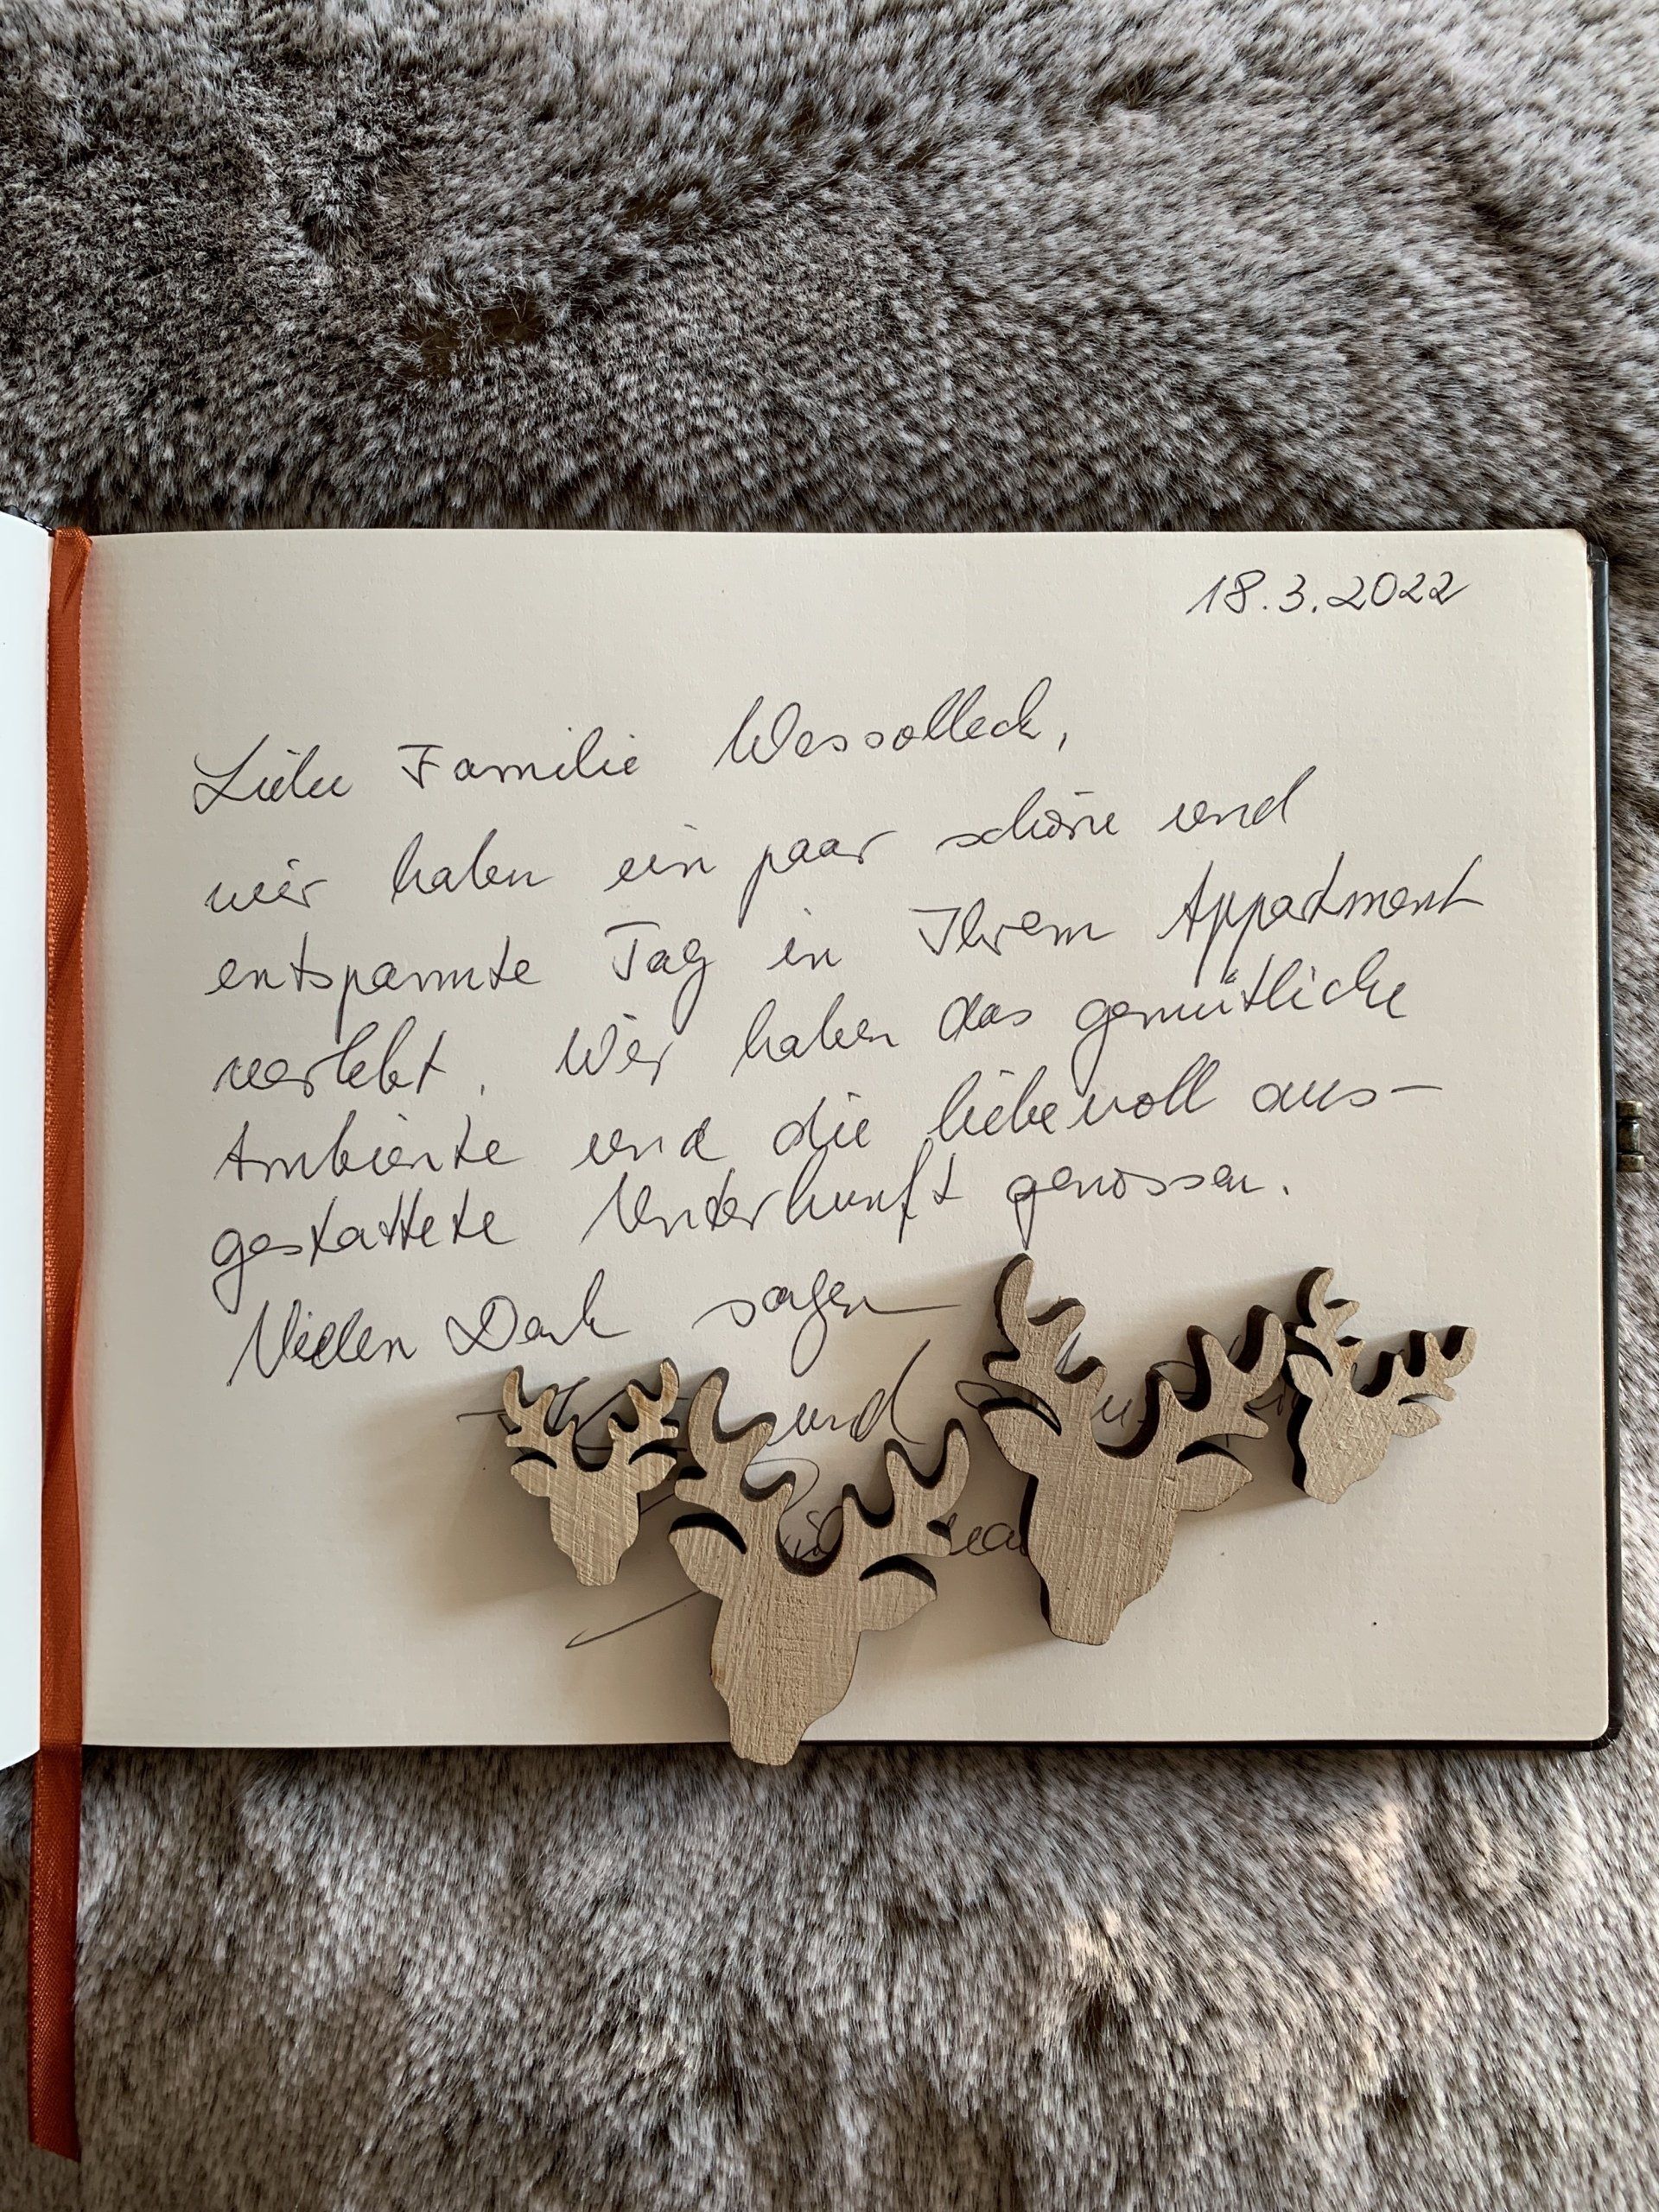 18.3.2022
Liebe Familie Wessolleck,
wir haben ein paar schöne und
entspannte Tag in Ihrem Appartment
verlebt. Wir haben das gemütliche
Ambiente und die liebevoll aus-
gestattete Unterkunft genossen.
Vielen Dank sagen
und